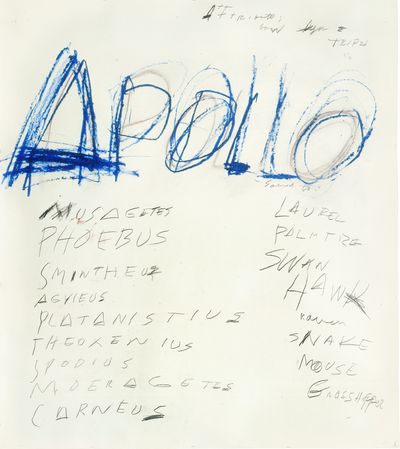 ATTRIBUTES
BOW
TRIPOD
APOLLO
MUSAGETES
PHOEBUS
SMINTHEUS
AGVIEUS
PLATANISTIUS
THEOXENIUS
SPODIUS
MOERAGETES
CARNEUS
LAUREL
PALM TREE
SWAN
HAWK
RAVEN
SNAKE
MOUSE
GRASSHOPPER